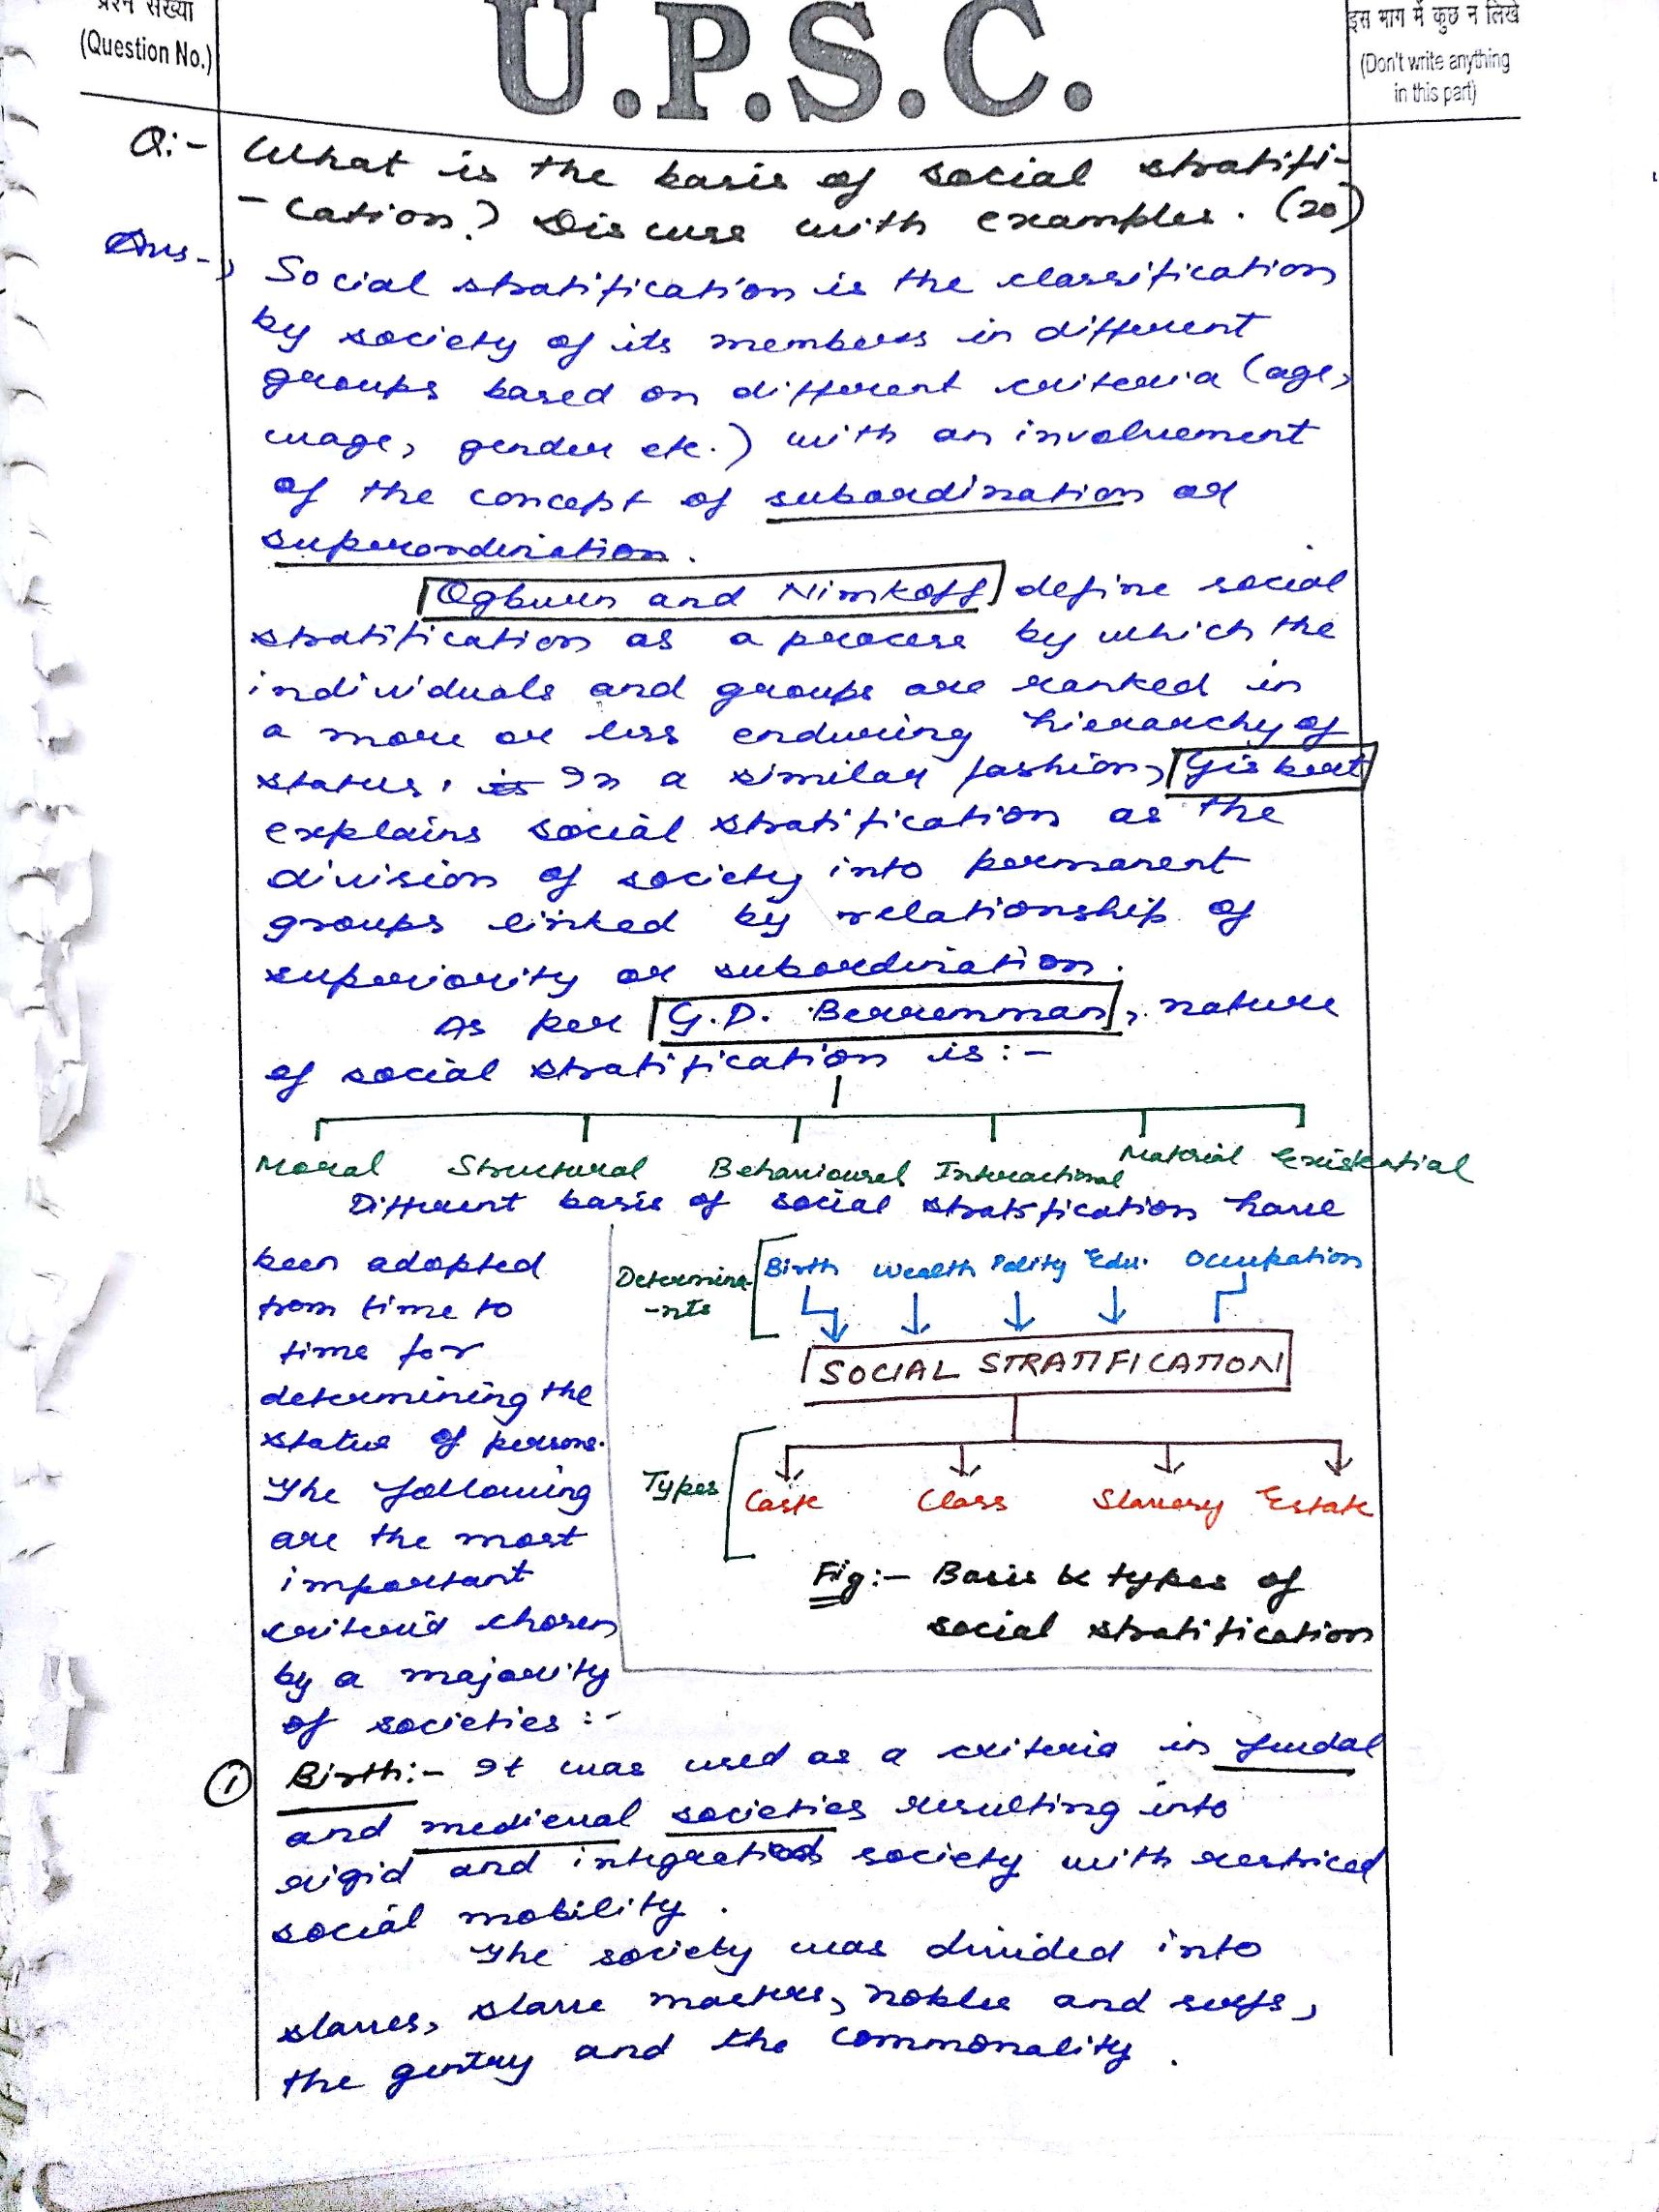 प्रश्न संख्या
(Question No.)
U.P.S.C.
इस भाग में कुछ न लिखें
(Don't write anything
in this part)
Q:- What is the basis of social stratifi-
-cation? Discuss with examples. (20)
Ans-, Social stratification is the classification
by society of its members in different
groups based on different criteria (age,
wage, gender etc.) with an involvement
of the concept of subordination or
superordination.
Ogburn and Nimkoff define social
stratification as a process by which the
individuals and groups are ranked in
a more or less enduring hierarchy of
status. is In a similar fashion, Gisbert
explains social stratification as the
division of society into permanent
groups linked by relationship of
superiority or subordination.
As per G.D. Berremman, nature
of social stratification is:-
Moral Structural Behavioural Interactional Material Existential
Different basis of social stratification have
been adopted
from time to
time for
determining the
status of persons.
The following
are the most
important
criteria chosen
by a majority
of societies :-
Determina-
-nts
Birth Wealth Polity Edu. Occupation
SOCIAL STRATIFICATION
Types
Caste Class Slavery Estate
Fig:- Basis & types of
social stratification
① Birth:- It was used as a criteria in feudal
and medieval societies resulting into
rigid and integrated society with restriced
social mobility.
The society was divided into
slaves, slave masters, nobles and serfs,
the gentry and the commonality.